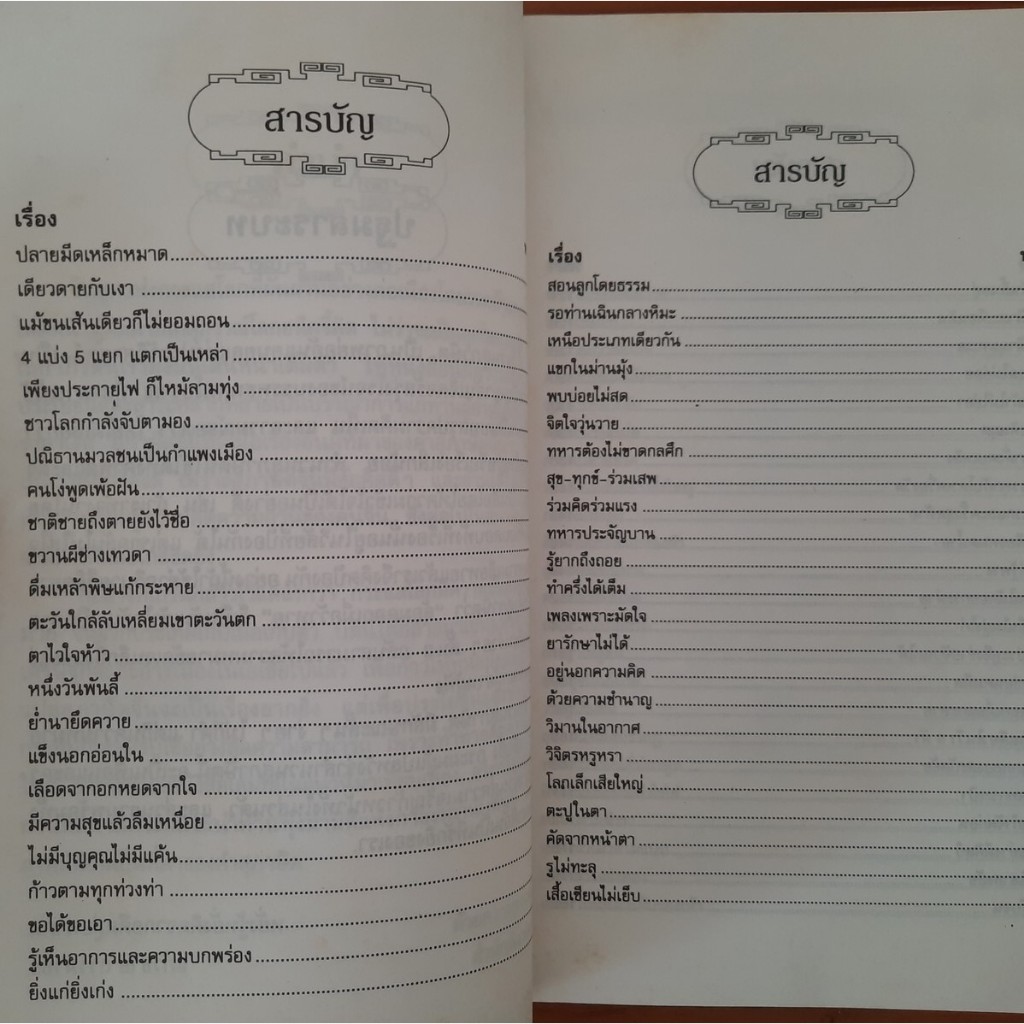 สารบัญ
เรื่อง
ปลายมีดเหล็กหมาด
เดียวดายกับเงา
แม้ขนเส้นเดียวก็ไม่ยอมถอน
4 แบ่ง 5 แยก แตกเป็นเหล่า
เพียงประกายไฟ ก็ไหม้ลามทุ่ง
ชาวโลกกำลังจับตามอง
ปณิธานมวลชนเป็นกำแพงเมือง
คนโง่พูดเพ้อฝัน
ชาติชายถึงตายยังไว้ชื่อ
ขวานผีช่างเทวดา
ดื่มเหล้าพิษแก้กระหาย
ตะวันใกล้ลับเหลี่ยมเขาตะวันตก
ตาไวใจห้าว
หนึ่งวันพันลี้
ย่ำนายึดควาย
แข็งนอกอ่อนใน
เลือดจากอกหยดจากใจ
มีความสุขแล้วลืมเหนื่อย
ไม่มีบุญคุณไม่มีแค้น
ก้าวตามทุกท่วงท่า
ขอได้ขอเอา
รู้เห็นอาการและความบกพร่อง
ยิ่งแก่ยิ่งเก่ง
สารบัญ
เรื่อง
สอนลูกโดยธรรม
รอท่านเฉินกลางหิมะ
เหนือประเภทเดียวกัน
แขกในม่านมุ้ง
พบบ่อยไม่สด
จิตใจวุ่นวาย
ทหารต้องไม่ขาดกลศึก
สุข-ทุกข์-ร่วมเสพ
ร่วมคิดร่วมแรง
ทหารประจัญบาน
รู้ยากถึงถอย
ทำครึ่งได้เต็ม
เพลงเพราะมัดใจ
ยารักษาไม่ได้
อยู่นอกความคิด
ด้วยความชำนาญ
วิมานในอากาศ
วิจิตรหรูหรา
โลภเล็กเสียใหญ่
ตะปูในตา
คัดจากหน้าตา
รูไม่ทะลุ
เสื้อเซียนไม่เย็บ